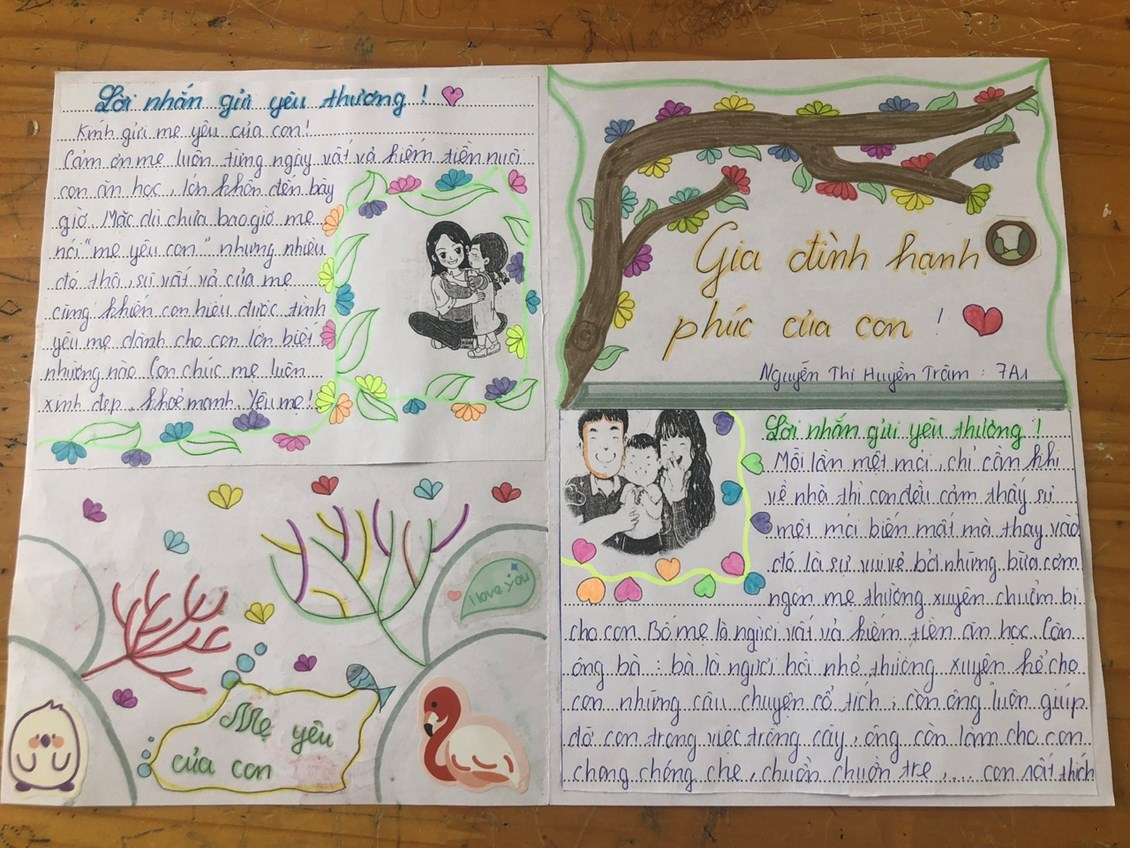 Lời nhắn gửi yêu thương !
Kính gửi mẹ yêu của con!
Cảm ơn mẹ luôn từng ngày vất vả kiếm tiền nuôi
con ăn học, lớn khôn đến bây
giờ. Mặc dù chưa bao giờ mẹ
nói "mẹ yêu con" nhưng nhiêu
đó thôi, sự vất vả của mẹ
cũng khiến con hiểu được tình
yêu mẹ dành cho con lớn biết
nhường nào. Con chúc mẹ luôn
xinh đẹp, khoẻ mạnh. Yêu mẹ!
Gia đình hạnh
phúc của con !
Nguyễn Thị Huyền Trâm : 7A1
Lời nhắn gửi yêu thương !
Mỗi lần mệt mỏi, chỉ cần khi
về nhà thì con đều cảm thấy sự
mệt mỏi biến mất mà thay vào
đó là sự vui vẻ bởi những bữa cơm
ngon mẹ thường xuyên chuẩn bị
cho con. Bố mẹ là người vất vả kiếm tiền ăn học. Còn
ông bà : bà là người hồi nhỏ thường xuyên kể cho
con những câu chuyện cổ tích, còn ông luôn giúp
đỡ con trong việc trồng cây, ông còn làm cho con
chong chóng che, chuồn chuồn tre,.... con rất thích
I love you
Mẹ yêu
của con